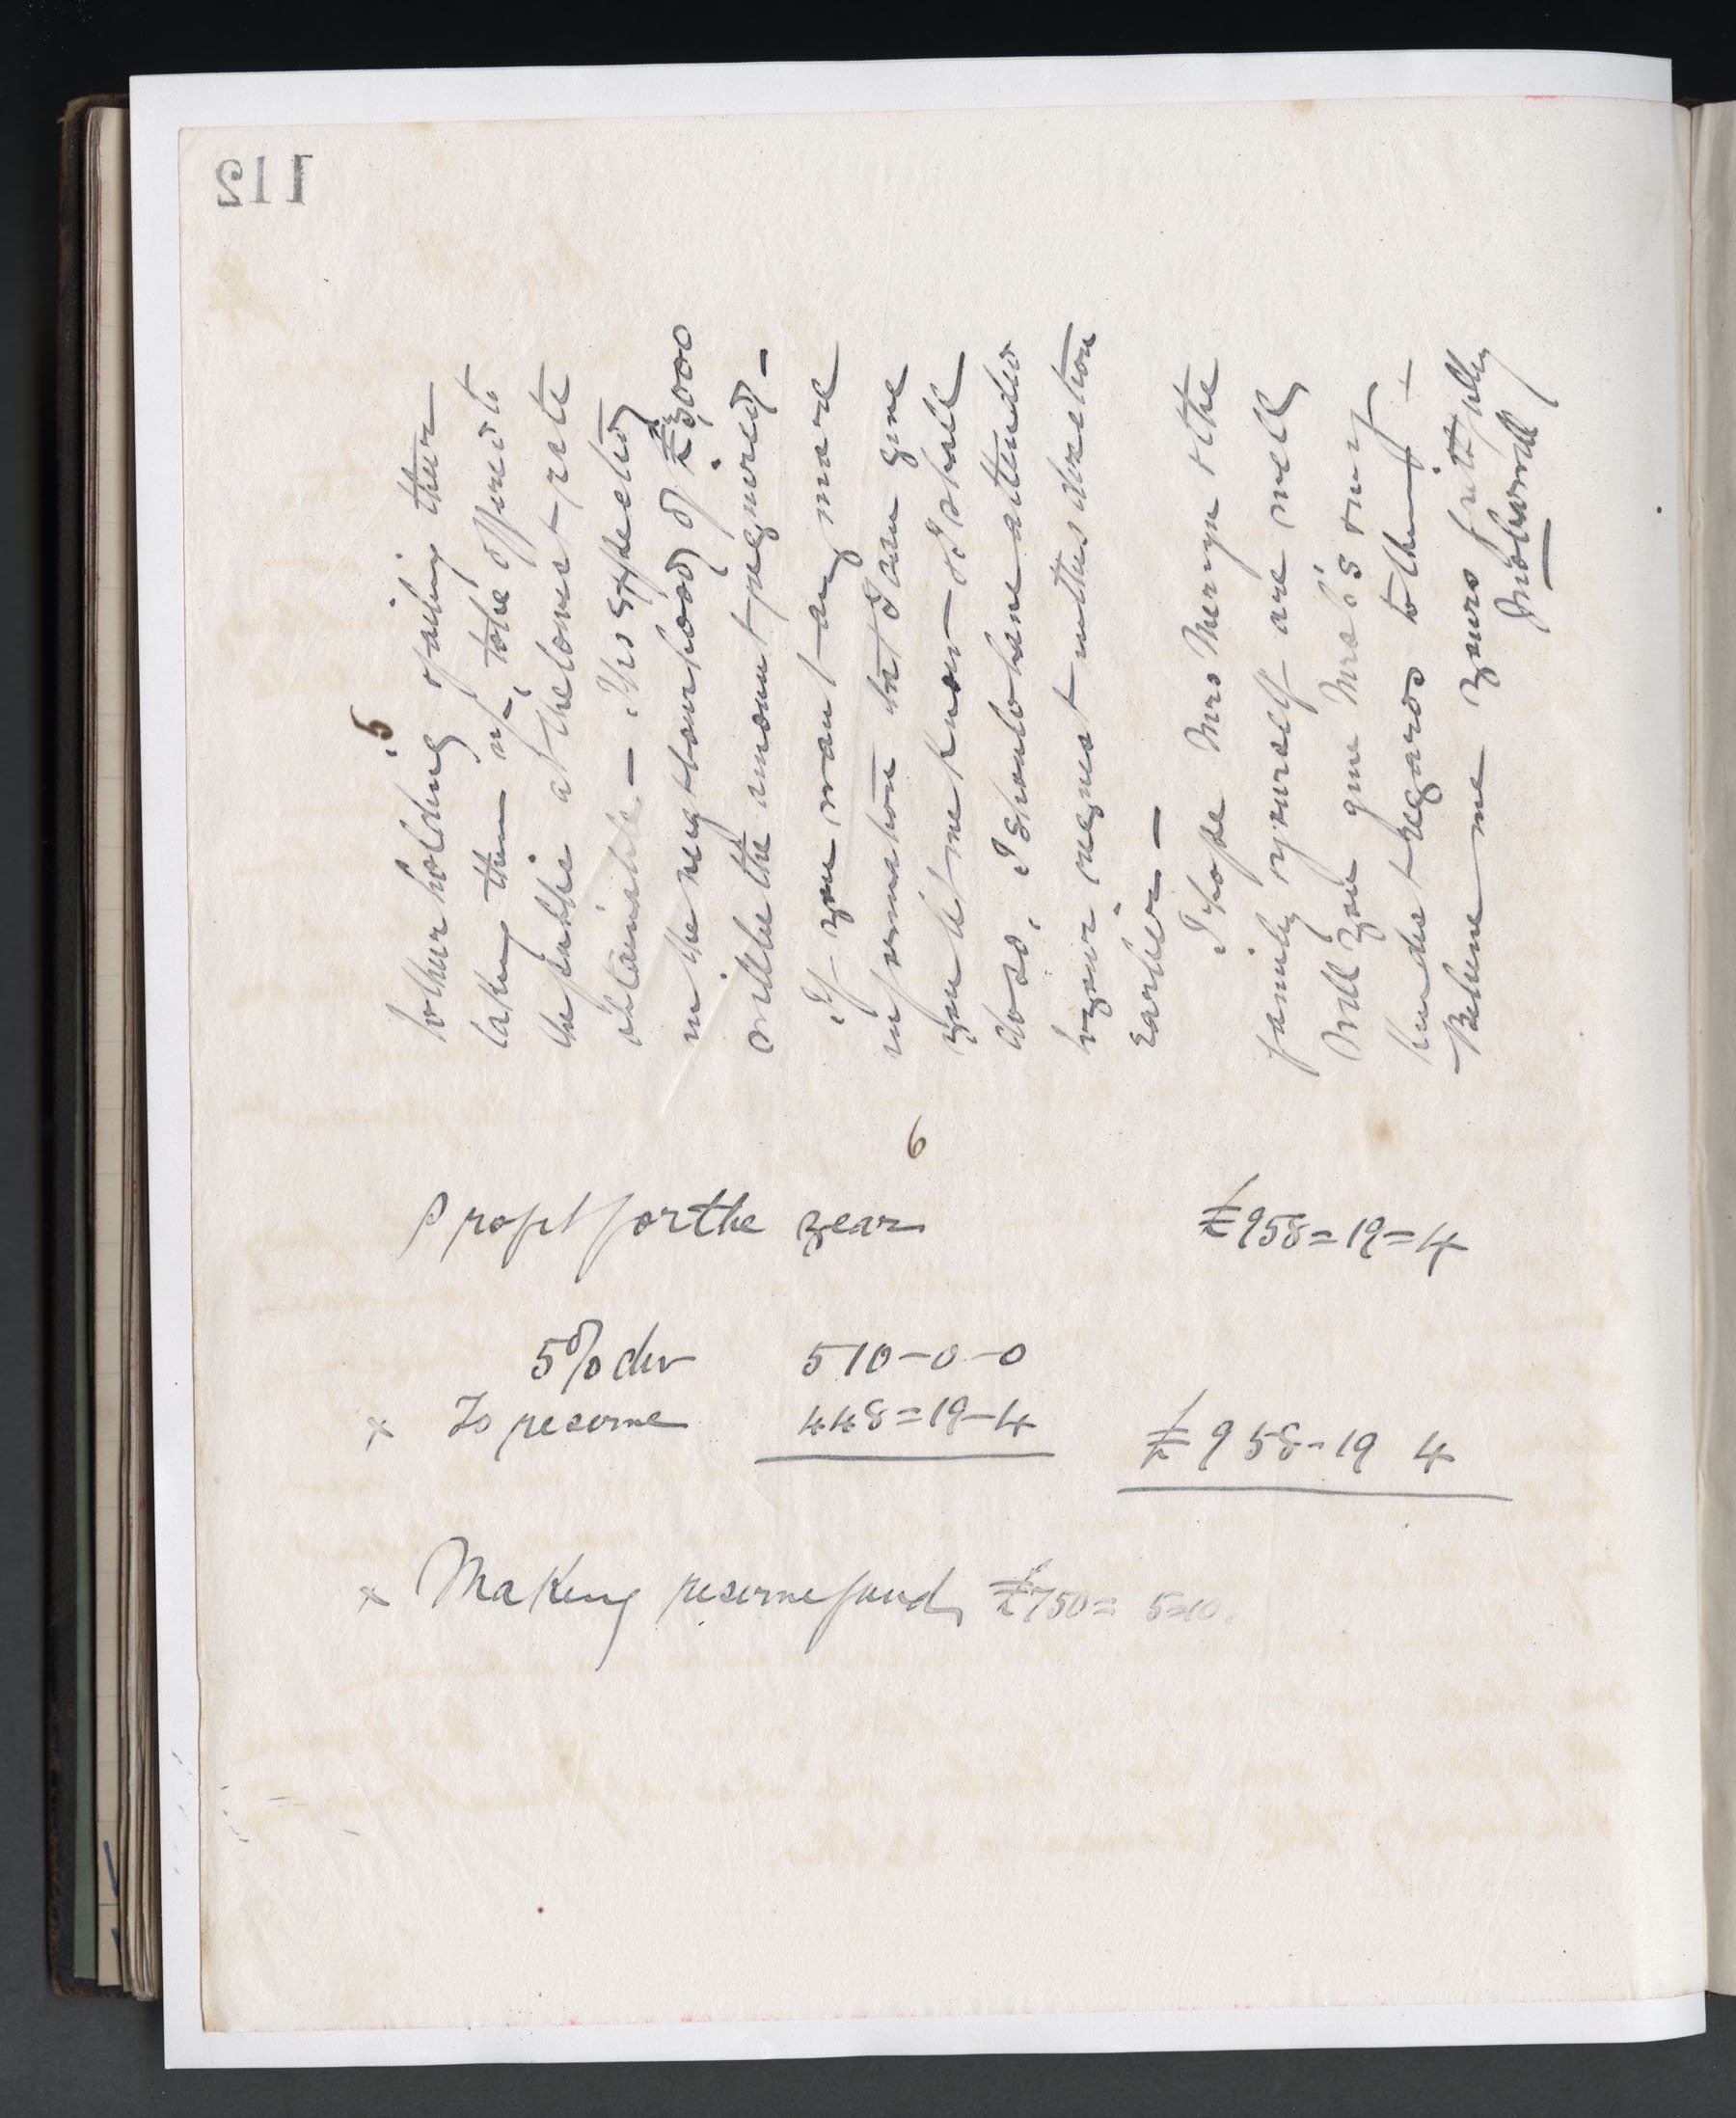 112
5
to their holding & failing their
taking them up, to be offered to
the public at the lowest rate
obtainable — It is expected
in the neighbourhood of £3,000
will be the amount required —
If you want any more
information that I can give
you let me know — & I shall
do so. I should have attended
to your request without direction
earlier —
I hope Mrs Merryn & the
family & yourself are well
Will you give Mrs B's & my
kindest regards to them —
Believe me yours faithfully
6
Profit for the year £958=19=4
5% div 510-0-0
x To reserve 448=19-4 £958-19 4
x Making reserve fund £750= 5=10